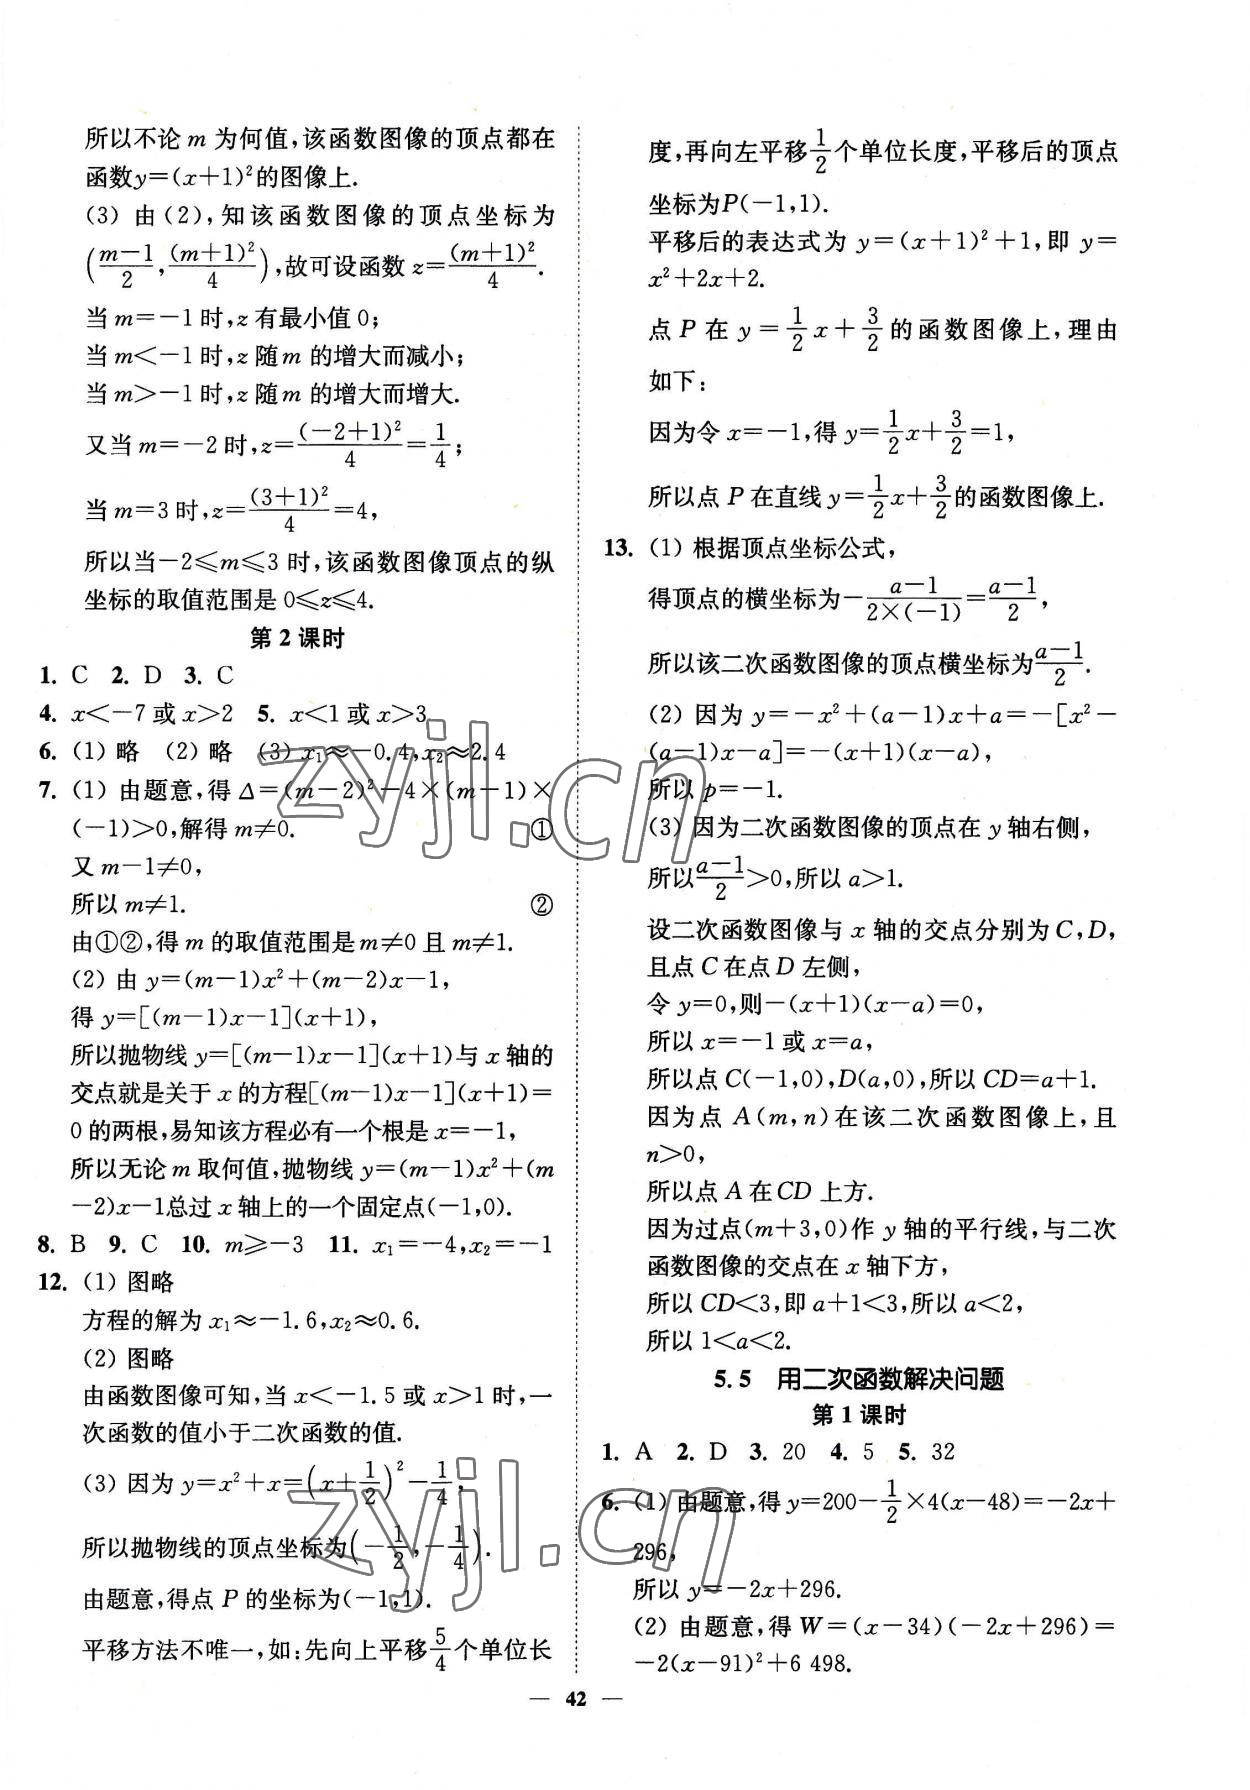 所以不论 m 为何值,该函数图像的顶点都在
函数y=(x+1)²的图像上.
(3) 由(2),知该函数图像的顶点坐标为
((m-1)/2,(m+1)²/4),故可设函数 z=(m+1)²/4.
当 m=-1 时,z 有最小值 0;
当 m<-1 时,z 随 m 的增大而减小;
当 m>-1 时,z 随 m 的增大而增大.
又当 m=-2 时,z=(-2+1)²/4=1/4;
当 m=3 时,z=(3+1)²/4=4,
所以当-2≤m≤3 时,该函数图像顶点的纵
坐标的取值范围是 0≤z≤4.
第 2 课时
1. C 2. D 3. C
4. x<-7 或 x>2 5. x<1 或 x>3
6. (1) 略 (2) 略 (3) x₁≈-0.4,x₂≈2.4
7. (1) 由题意,得 Δ=(m-2)²-4×(m-1)×
(-1)>0,解得 m≠0. ①
又 m-1≠0,
所以 m≠1. ②
由①②,得 m 的取值范围是 m≠0 且 m≠1.
(2) 由 y=(m-1)x²+(m-2)x-1,
得 y=[(m-1)x-1](x+1),
所以抛物线 y=[(m-1)x-1](x+1)与 x 轴的
交点就是关于 x 的方程[(m-1)x-1](x+1)=
0 的两根,易知该方程必有一个根是 x=-1,
所以无论 m 取何值,抛物线 y=(m-1)x²+(m
-2)x-1总过 x 轴上的一个固定点(-1,0).
8. B 9. C 10. m≥-3 11. x₁=-4,x₂=-1
12. (1) 图略
方程的解为 x₁≈-1.6,x₂≈0.6.
(2) 图略
由函数图像可知,当 x<-1.5 或 x>1 时,一
次函数的值小于二次函数的值.
(3) 因为 y=x²+x=(x+1/2)²-1/4,
所以抛物线的顶点坐标为(-1/2,-1/4).
由题意,得点 P 的坐标为(-1,1).
平移方法不唯一,如:先向上平移5/4个单位长
度,再向左平移1/2个单位长度,平移后的顶点
坐标为P(-1,1).
平移后的表达式为 y=(x+1)²+1,即 y=
x²+2x+2.
点 P 在 y=1/2x+3/2 的函数图像上,理由
如下:
因为令 x=-1,得 y=1/2x+3/2=1,
所以点 P 在直线 y=1/2x+3/2的函数图像上.
13. (1) 根据顶点坐标公式,
得顶点的横坐标为-(a-1)/(2×(-1))=(a-1)/2,
所以该二次函数图像的顶点横坐标为(a-1)/2.
(2) 因为 y=-x²+(a-1)x+a=-[x²-
(a-1)x-a]=-(x+1)(x-a),
所以 p=-1.
(3) 因为二次函数图像的顶点在 y 轴右侧,
所以(a-1)/2>0,所以 a>1.
设二次函数图像与 x 轴的交点分别为 C,D,
且点 C 在点 D 左侧,
令 y=0,则-(x+1)(x-a)=0,
所以 x=-1 或 x=a,
所以点 C(-1,0),D(a,0),所以 CD=a+1.
因为点 A(m,n)在该二次函数图像上,且
n>0,
所以点 A 在CD 上方.
因为过点(m+3,0)作 y 轴的平行线,与二次
函数图像的交点在 x 轴下方,
所以 CD<3,即 a+1<3,所以 a<2,
所以 1<a<2.
5.5 用二次函数解决问题
第 1 课时
1. A 2. D 3. 20 4. 5 5. 32
6. (1) 由题意,得 y=200-1/2×4(x-48)=-2x+
296,
所以 y=-2x+296.
(2) 由题意,得 W=(x-34)(-2x+296)=
-2(x-91)²+6 498.
— 42 —
zyjl.cn
zyjl.cn